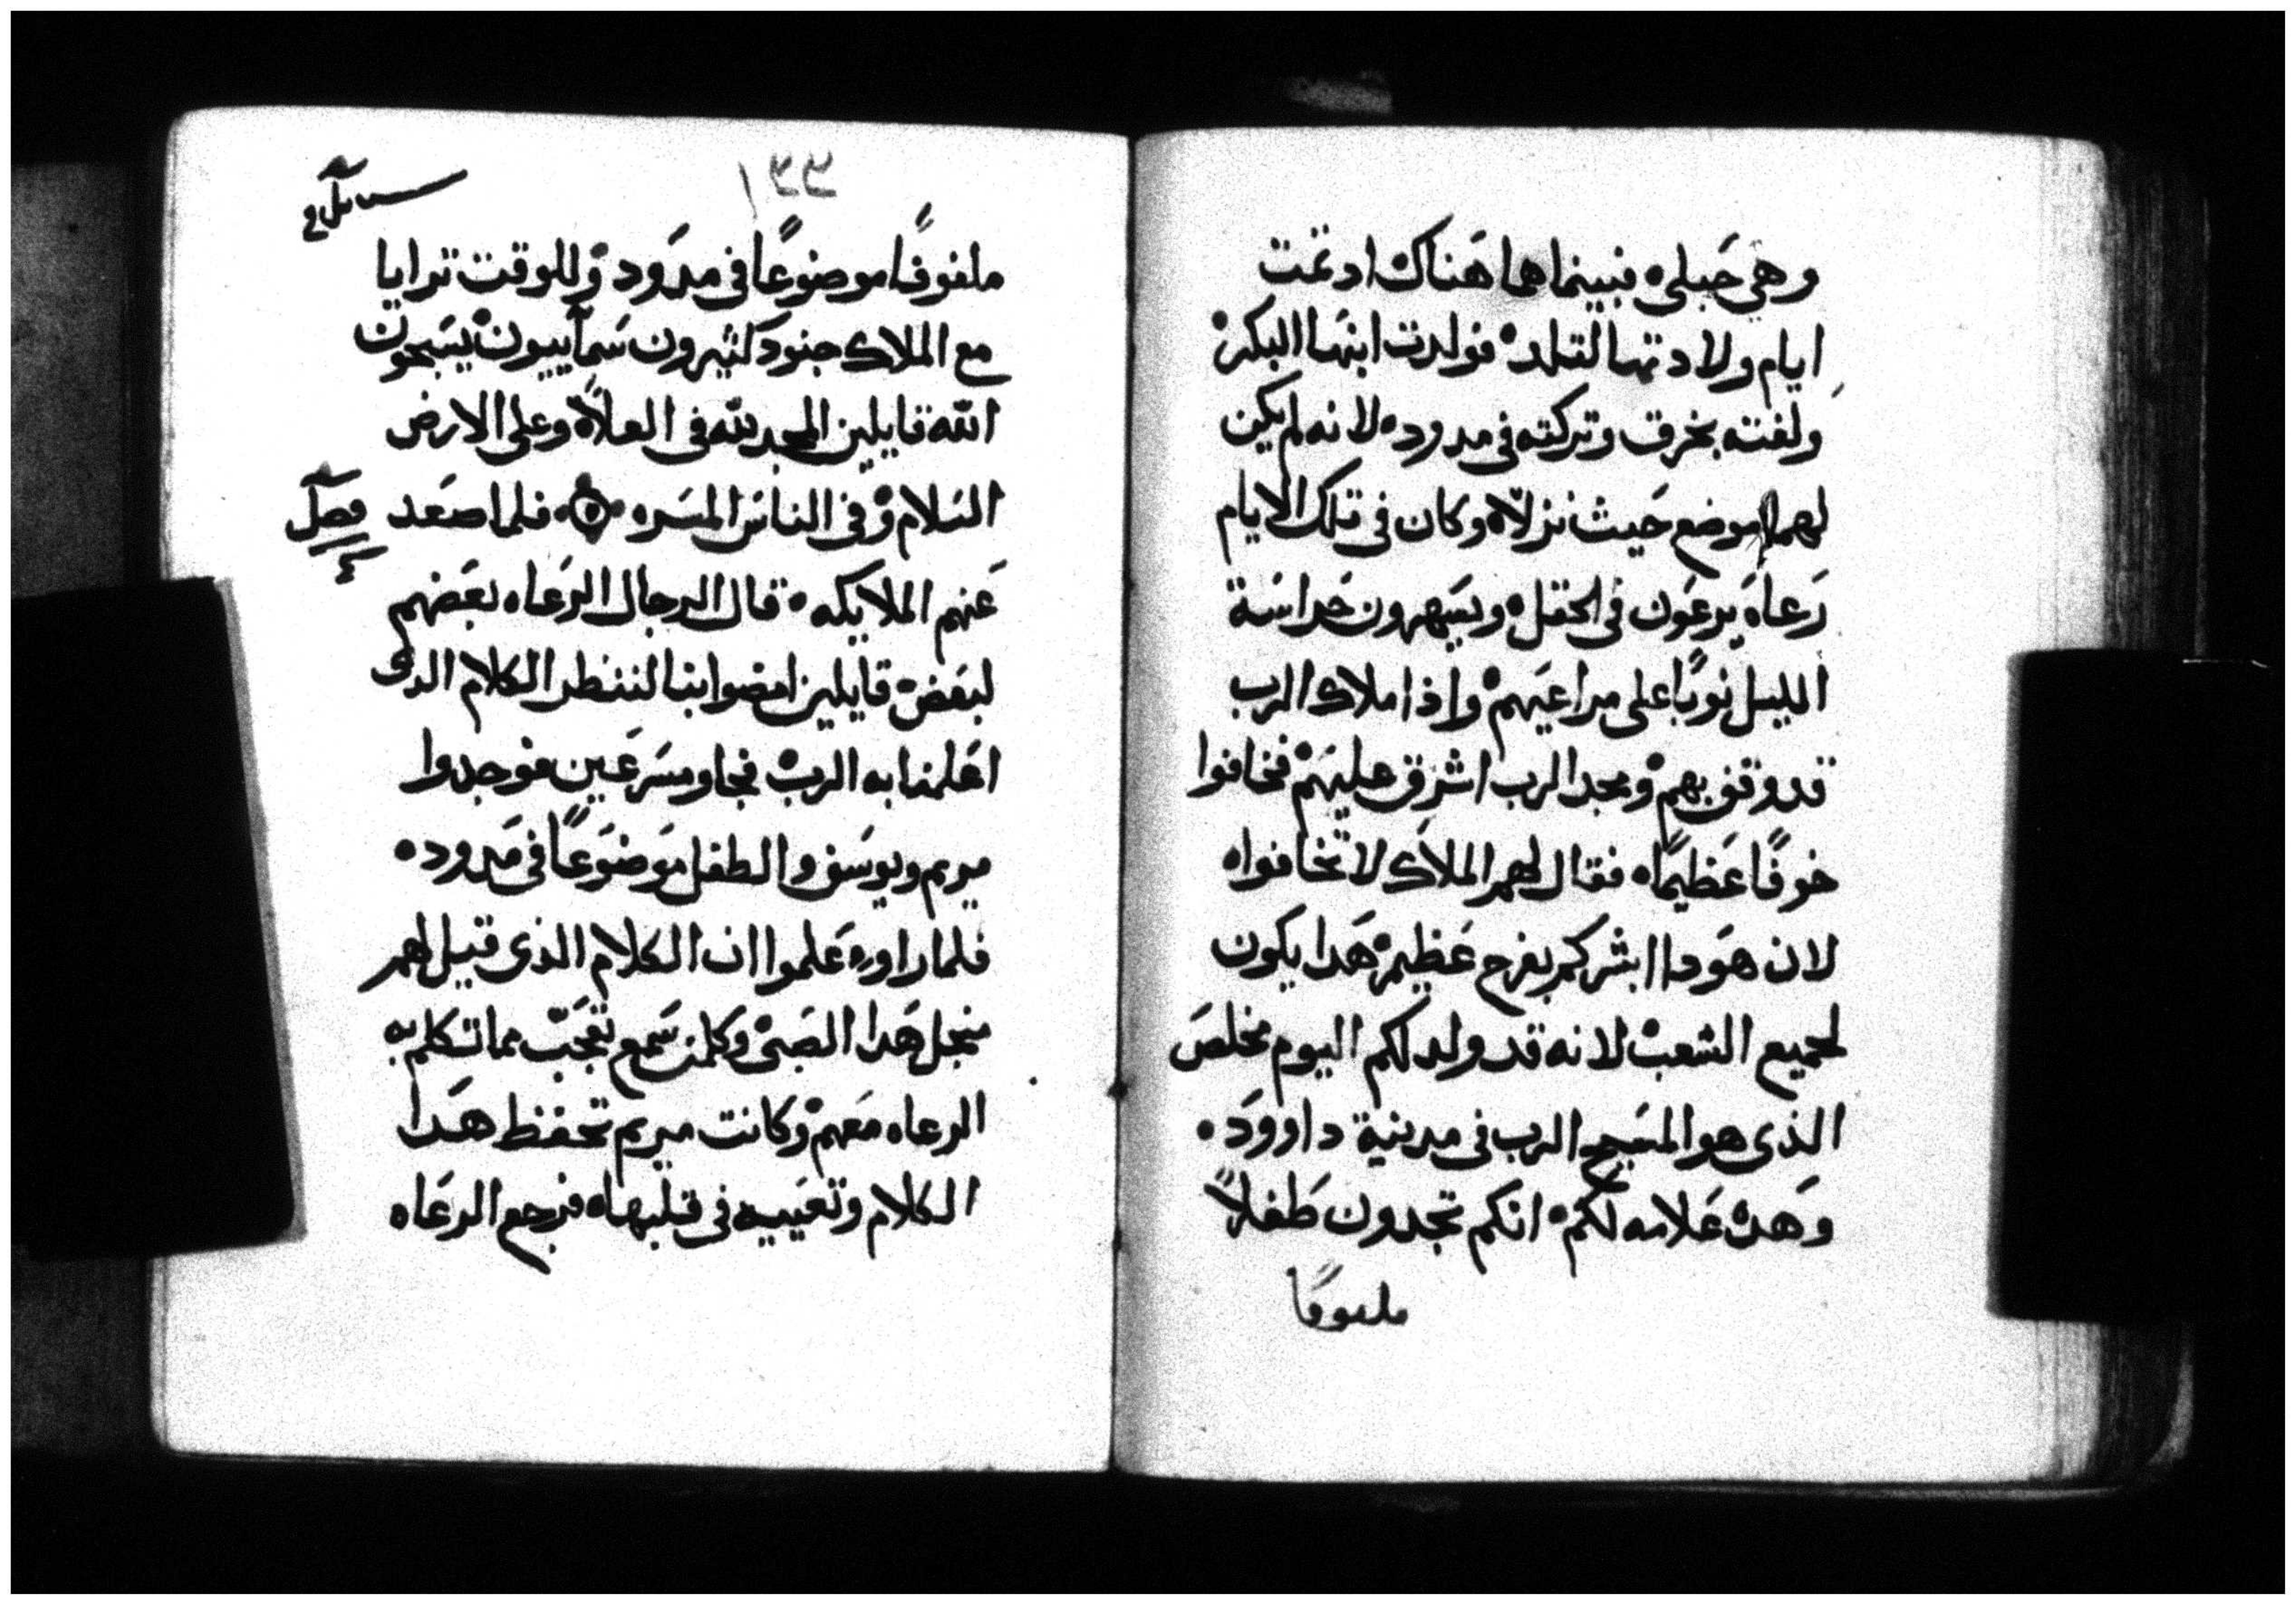 وهي حَبلي ه فبينما هما هَناك اد تمت
ايام ولادتها لتلد ه فولدت ابنها البكر ه
ولفته بخرق وتركته في مدود ه لانه لم يكن
لهما موضع حَيث نزلا ه وكان في تلك الايام
رَعاه يرعَون في الحقل ه ويسَهرون حَراسَة
الليل نوبًا على مراعيَهم ه واذا ملاك الرب
قد وقف بهم ه ومجد الرب اشرق عليهَم ه فخافوا
خوفًا عَظيمًا ه فقال لهم الملاك لا تخافوا ه
لان هَودا ابشركم بفرح عَظيم ه هَدا يكون
لجميع الشعب ه لانه قد ولد لكم اليوم مخلصَ
الذي هو المسَيح الرب في مدينة داوودَ ه
وَهَده عَلامه لكم ه انكم تجدون طَفلاً
ملفوفًا
ملفوفًا موضوعًا في مدَود ه وللوقت ترايا
مع الملاك جنودَ كثيرون سَمآييون ه يسَبحون
الله قايلين المجد لله في العلاَ ه وعلى الارض
السَلام ه وفي الناسَ المسَره ه فلما صعَد
فصل
٤
عَنهم الملايكه ه قال الرجال الرعَاه بعَضهم
لبعَض ه قايلين امضوا بنا لننظر الكلام الدى
اعَلمنا به الرب ه فجاو مسَرعَين فوجدوا
مريم ويوسَف والطفل مَوضوَعًا في مَدود ه
فلما راوه عَلموا ان الكلام الذي قيل لهم
منجل هَدا الصَبى ه وكلمن سَمع تعجَبّ مما تكلم به
الرعاه معَهم ه وكانت مريم تحفظ هَدا
الكلام وتعَيه في قلبها ه فرجع الرعَاه